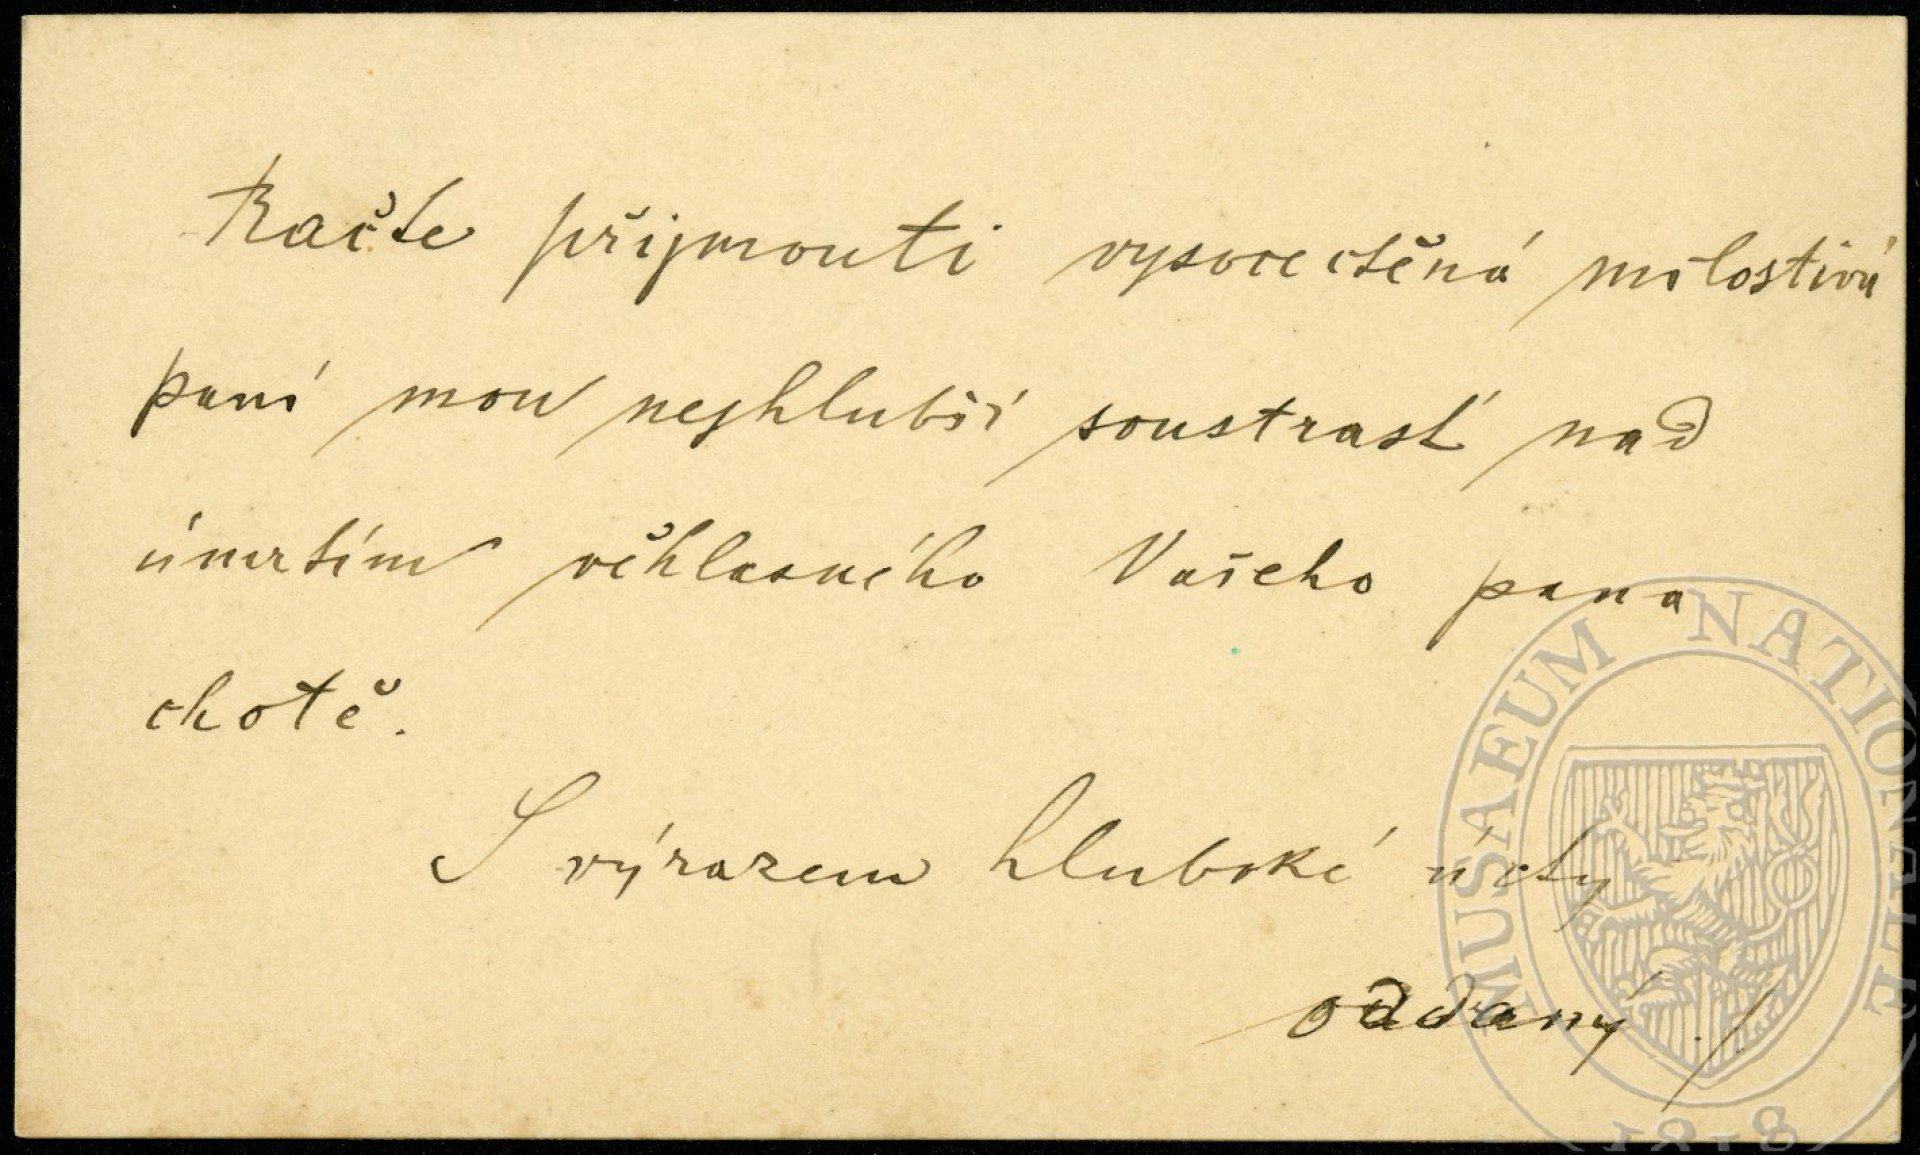 Račte přijmouti vysocectěná milostivá
paní mou nejhlubší soustrast nad
úmrtím věhlasného Vašeho pana
chotě.
S výrazem hluboké úcty
oddaný
MUSAEUM NATIONALE
1818